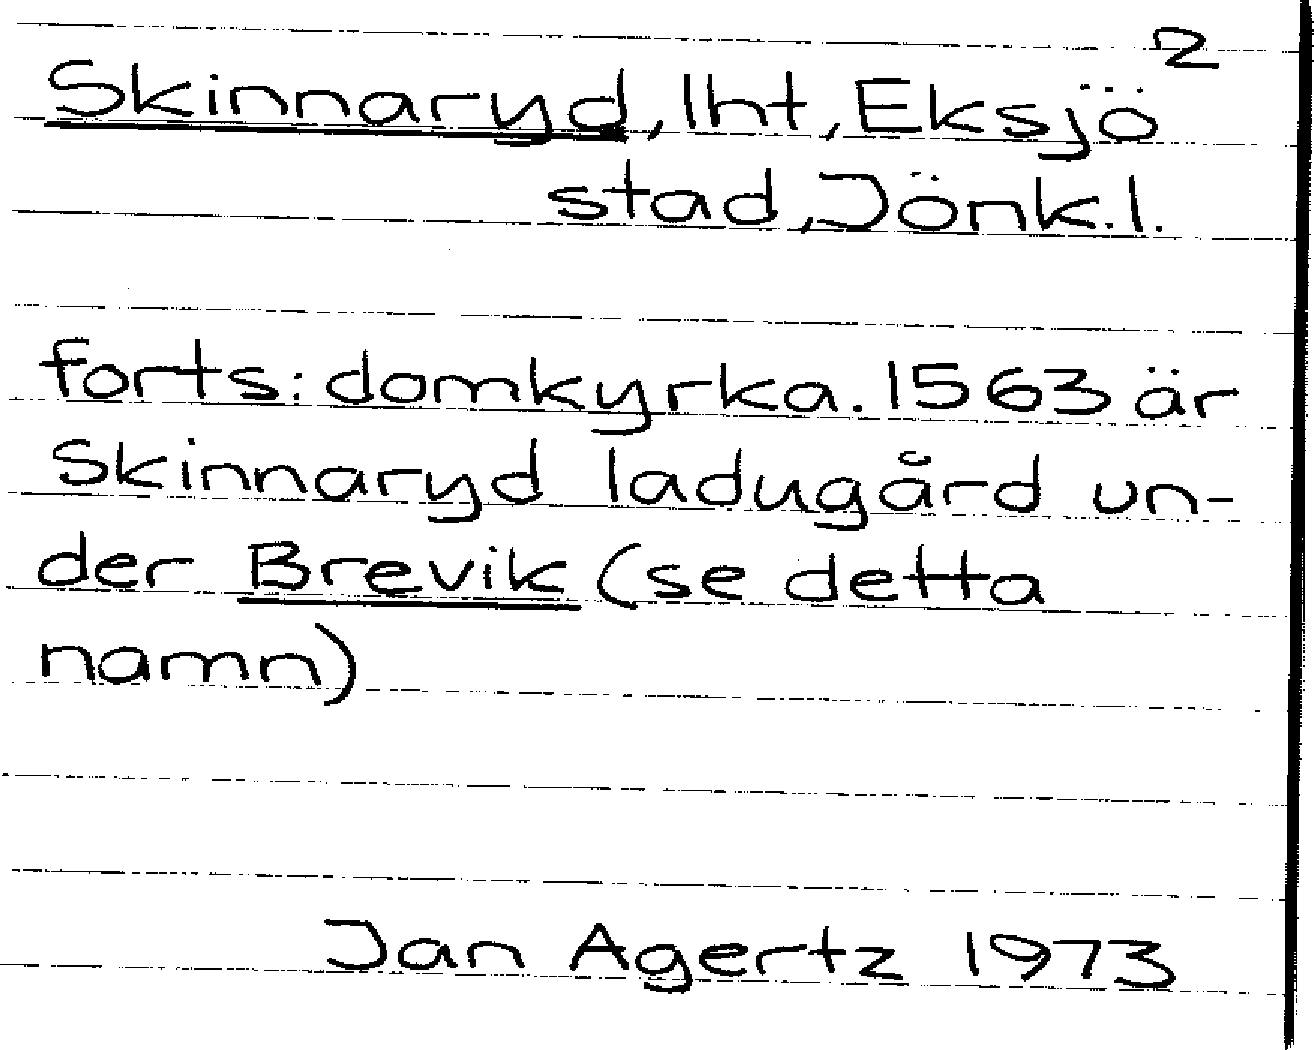 2
Skinnaryd, lht, Eksjö
stad, Jönk.l.
forts: domkyrka. 1563 är
Skinnaryd ladugård un-
der Brevik (se detta
namn)
Jan Agertz 1973